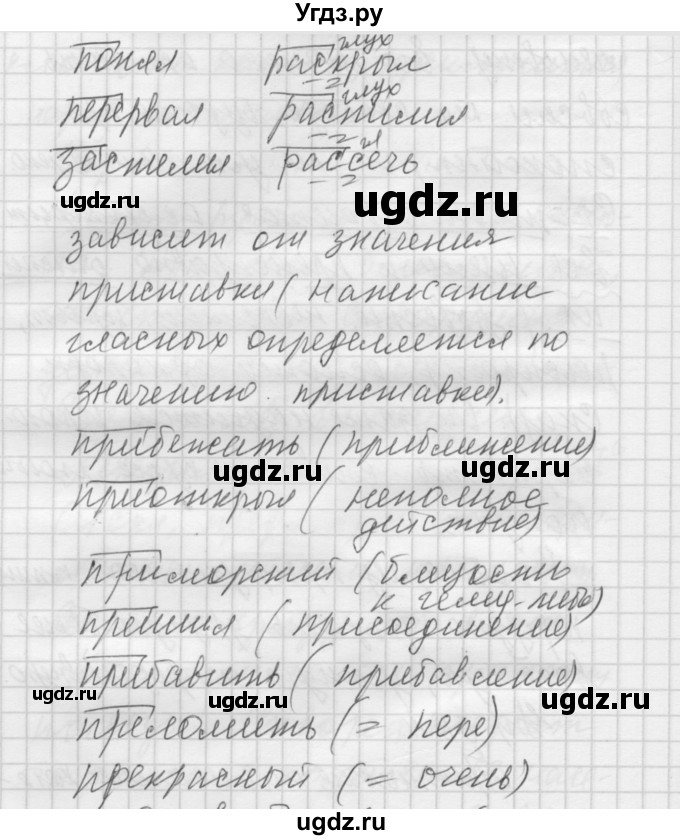 Угдз.ру
глух
понял раскрыл
глух
перервал распилил
гл
застелил рассечь
ugdz.ru ugdz.ru
зависит от значения
приставки (написание
гласных определяется по
значению приставки).
прибежать (приближение)
ugdz.ru ugdz.ru
приоткрыл (неполное
действие)
приморский (близость
к чему-либо)
пришил (присоединение)
прибавить (прибавление)
ugdz.ru ugdz.ru ugdz.ru
преломить (= пере)
прекрасный (= очень)
ugdz.ru